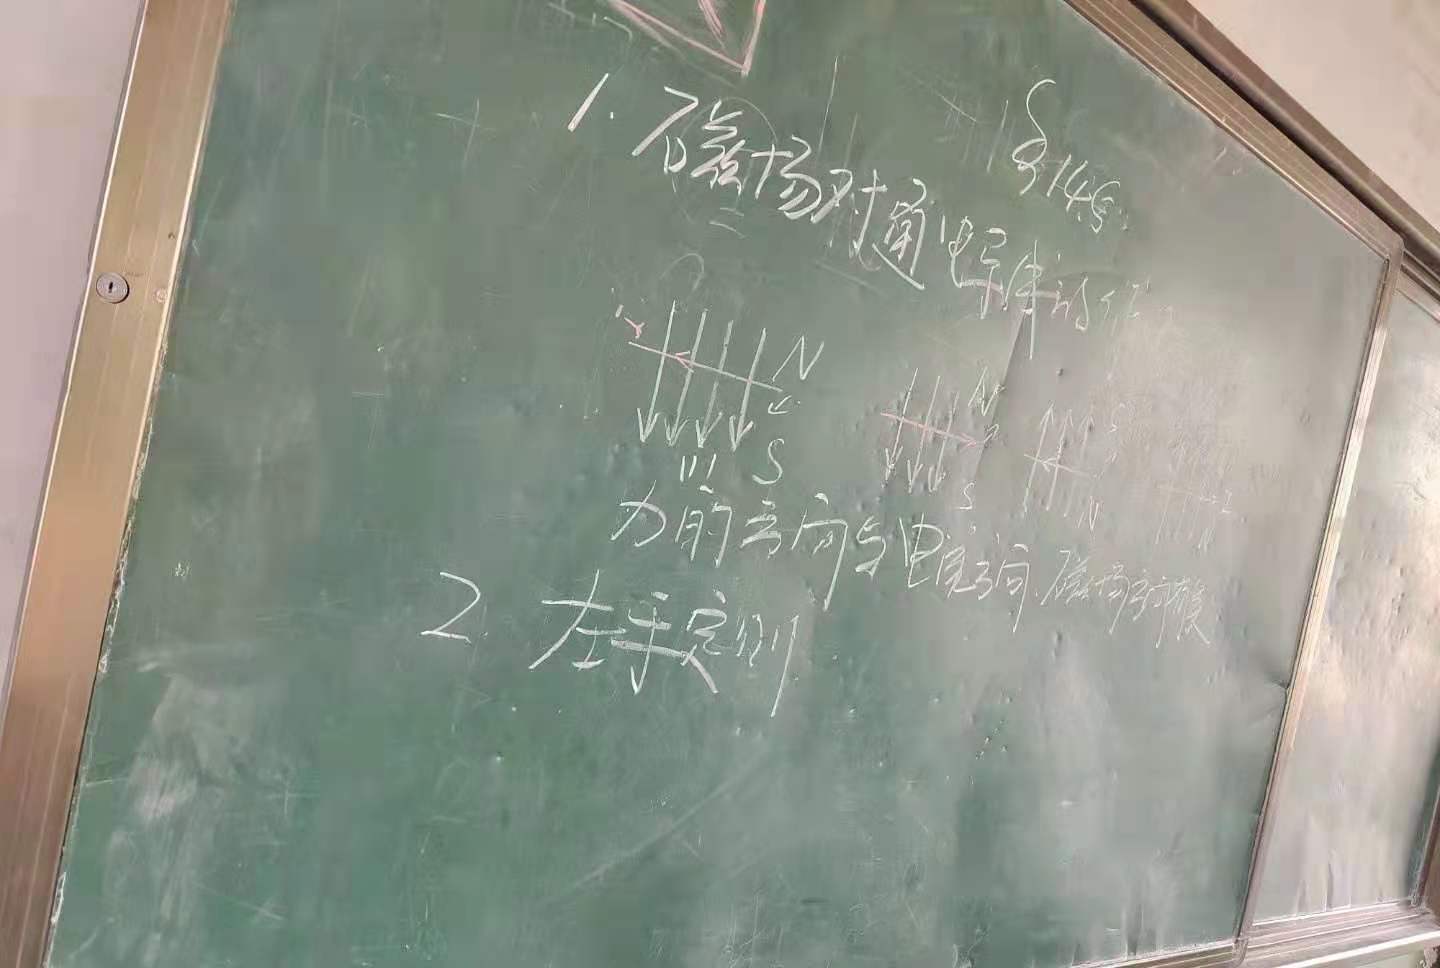 §14.5
1. 磁场对通电导体的作
N
S
N
S
S
N
力的方向与电流方向 磁场方向有关
2. 左手定则